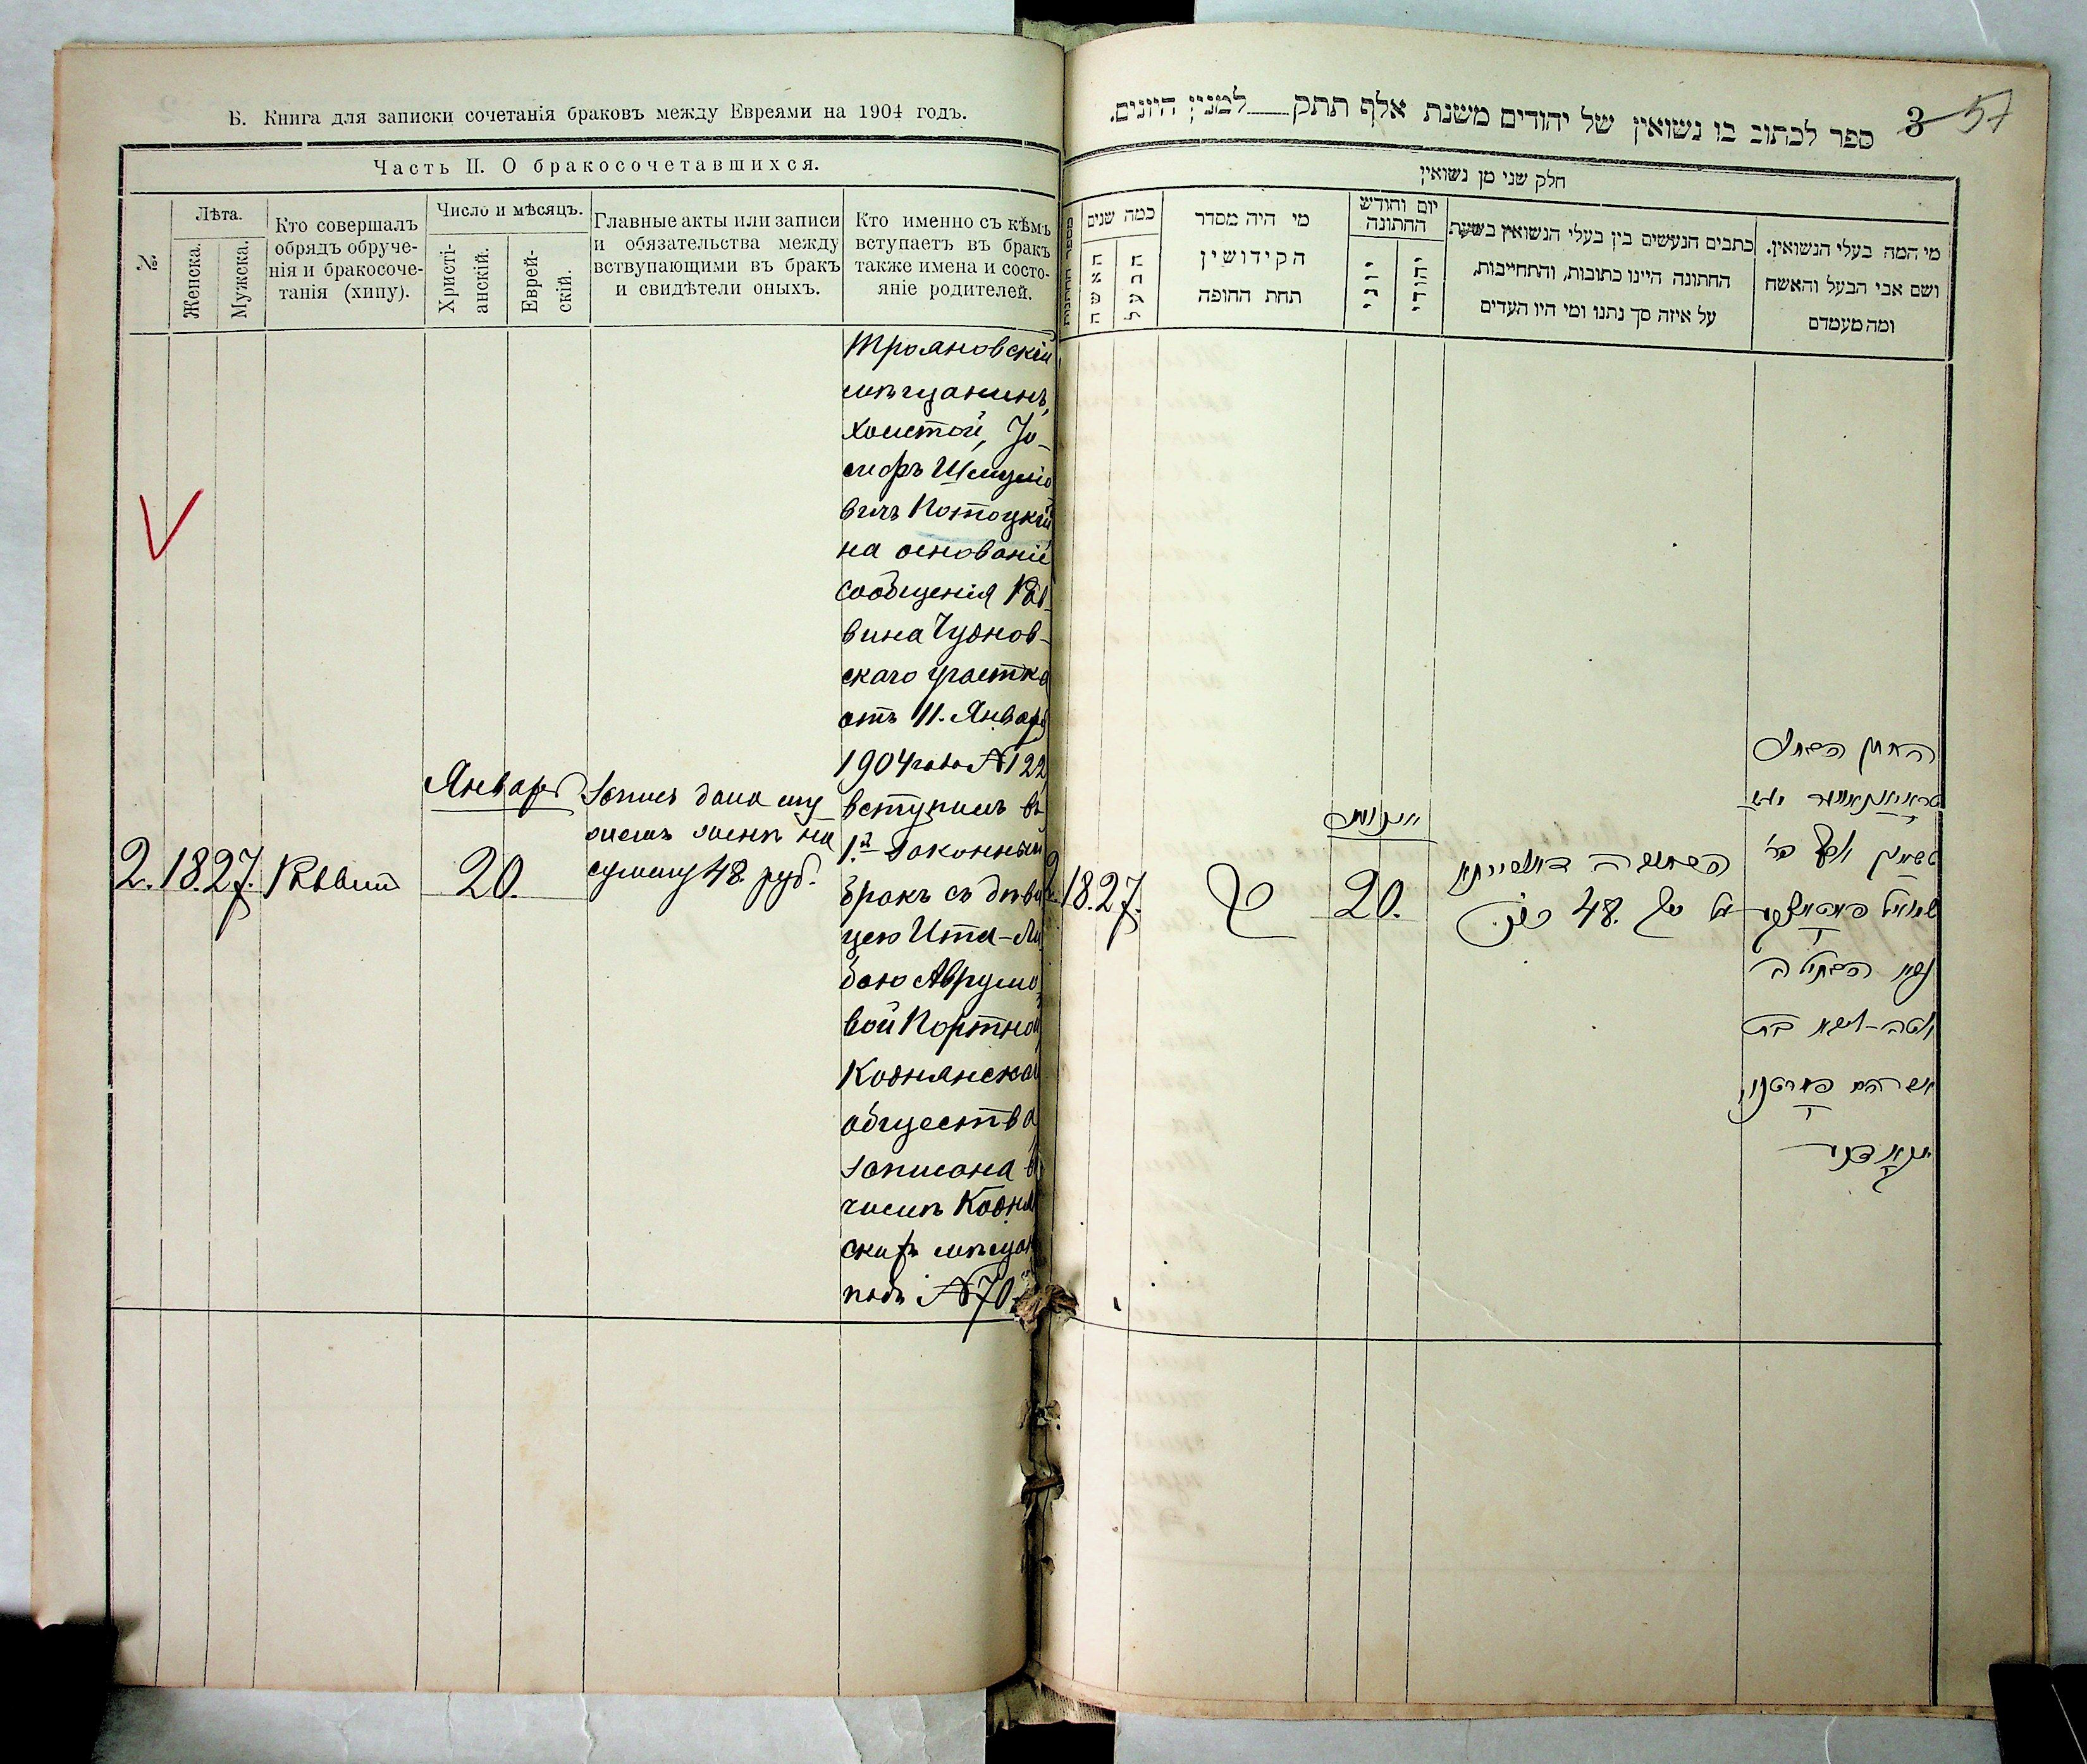 Б. Книга для записки сочетанія браковъ между Евреями на 1904 годъ.
Часть II. О бракосочетавшихся.
№
Лѣта.
Женска.
Мужска.
Кто совершалъ
обрядъ обруче-
нія и бракосоче-
танія (хипу).
Число и мѣсяцъ.
Христі-
анскій.
Еврей-
скій.
Главные акты или записи
и обязательства между
вствупающими въ бракъ
и свидѣтели оныхъ.
Кто именно съ кѣмъ
вступаетъ въ бракъ
также имена и состо-
яніе родителей.
2.
18.
27.
Раввин
Январ
20.
Запись дана
на
сумму 48. руб.
Трояновскій
мѣщанинъ,
холостой, Іо-
сифъ Шмуліо
вичъ Потоцкій
на основаніи
сообщенія Рав-
вина Чуднов-
скаго участка
отъ 11. Январ
1904 года № 122
вступилъ въ
1.й законный
бракъ съ дѣви
цею Ита-Ли
бою Аврумо
вой Портной
Коднянска
общества
записана в
числѣ Кодня
скихъ мѣщан
подъ № 70
3 57
ספר לכתוב בו נשואין של יהודים משנת אלף תתק למנין היונים.
חלק שני מן נשואין
מספר החתונות
כמה שנים
האשה
הבעל
מי היה מסדר
הקידושין
תחת החופה
יום וחודש
החתונה
יוני
יהודי
כתבים הנעשים בין בעלי הנשואין בשעת
החתונה היינו כתובות, והתחייבות,
על איזה סך נתנו ומי היו העדים
מי המה בעלי הנשואין.
ושם אבי הבעל והאשה
ומה מעמדם
18.
27.
20.
על סך 48. רו״כ
החתן
שמואל פאטאצקי
נשא הבתולה
איטה-ליבא בת
אברהם פורטנוי